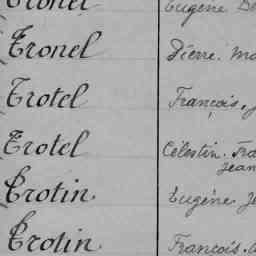 Tronel Eugène
Tronel Pierre.
Trotel François,
Trotel Célestin.
Jean
Trotin Eugène
Trotin François.